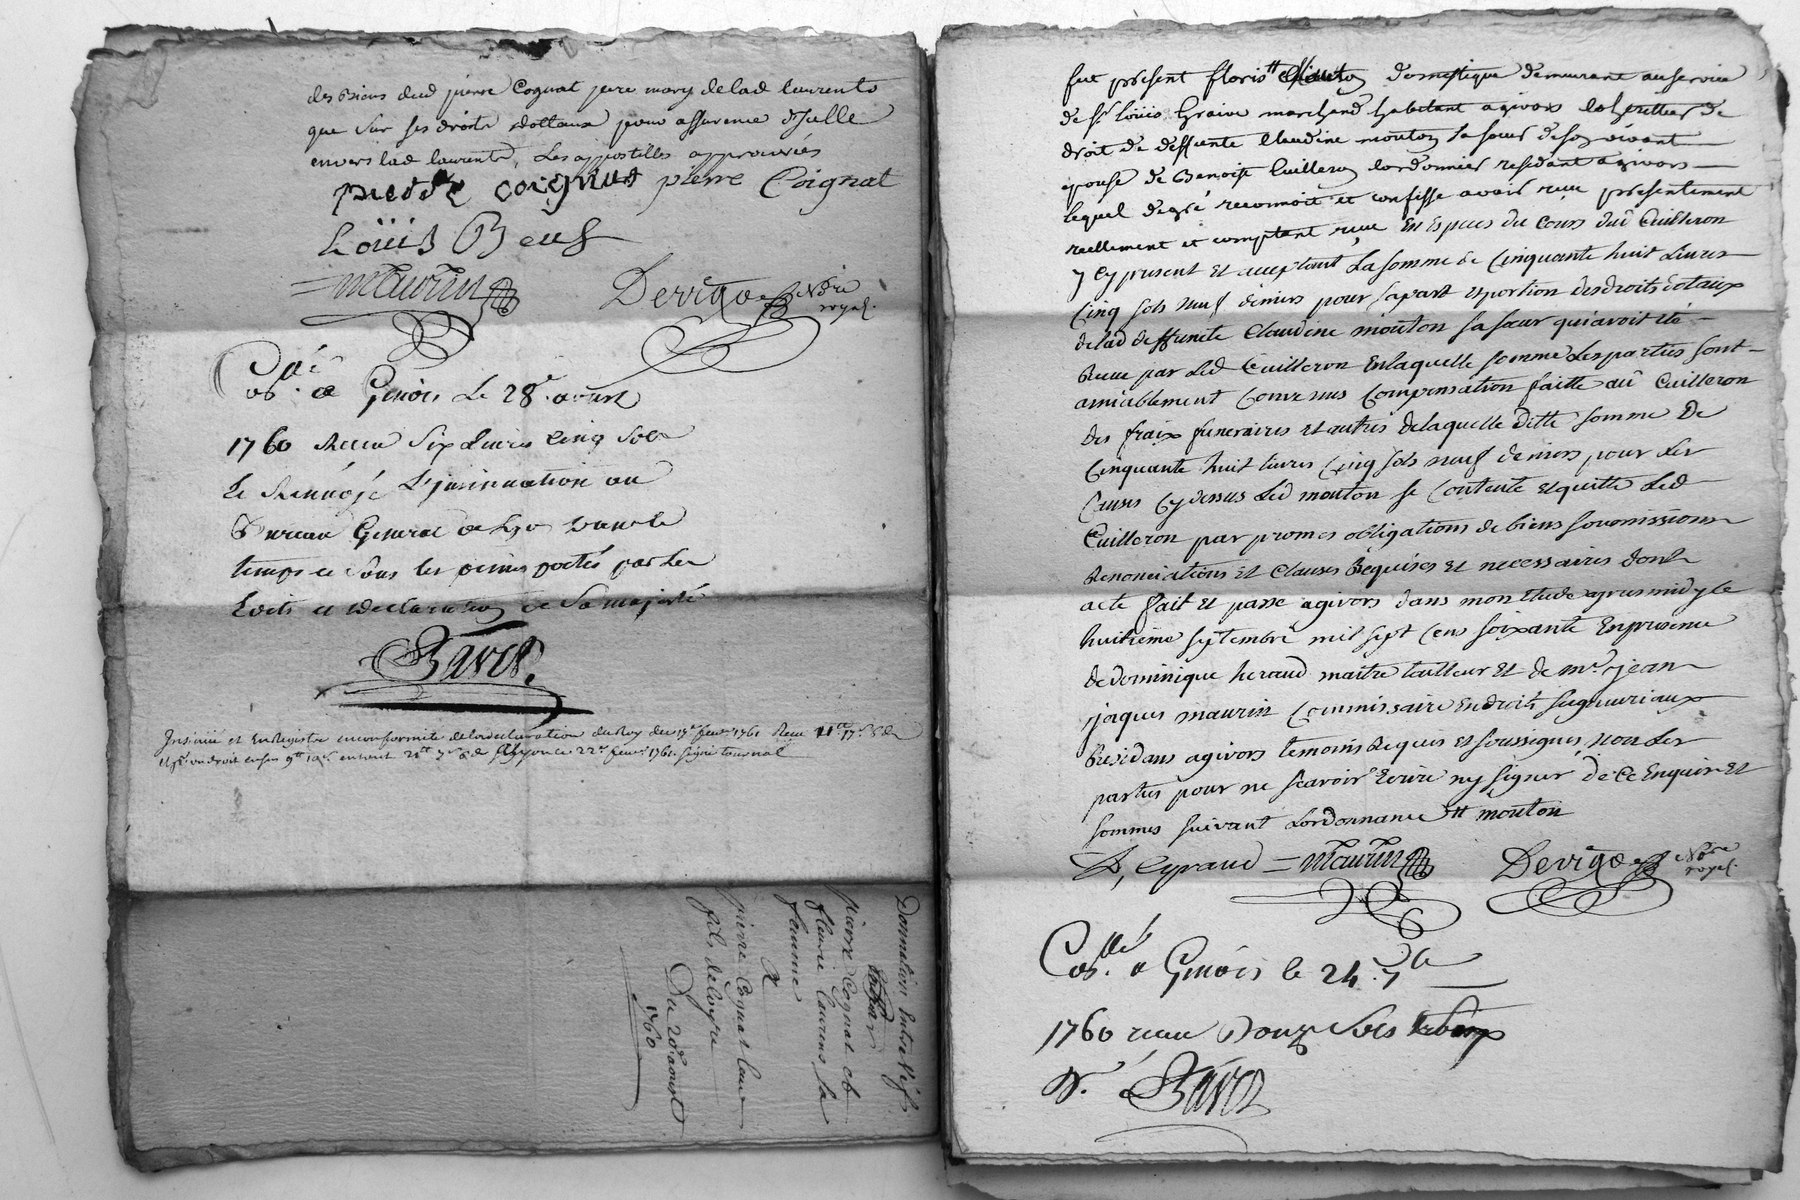 des biens dud pierre Cognat pere mary de lad laurente
que sur ses droits dottaux pour assurance d'Icelle
envers lad laurente, Les appostilles approuvées
pierre coignat pierre Coignat
Loüis Beuf
Maurin Devigo Nore
royal.
Con.llé a Givors Le 28e aoust
1760 Receu Six Livres Cinq Sols
Et Renvoyé L'insinuation au
Bureau General de Lyon dans le
temps et sous les peines portés par Les
Edits et Declaration de Sa majesté
Bavos.
Insinué et Enregistré en conformité de la declaration du Roy du
1761 signé tournal
Donnation Entre Vifs
pierre Cognat et
fleurie Laurens sa
femme
A
pierre Cognat leur
fils de Loyre
Du 20e aoust
1760
fut présent floris domestique demeurant au service
de Sr Loüis Graive marchand habitant a givors héritier de
droit de deffunte Claudine mouton sa soeur de son vivant
épouse de Benoist Cuilleron Cordonnier residant a givors
lequel de gré reconnoit et confesse avoir reçu présentement
reellement et comptant reçue En Especes du Cours dud Cuilleron
y Cy present Et acceptant La somme de Cinquante huit Livres
Cinq sols neuf deniers pour sa part et portion des droits dotaux
de lad deffunte Claudine mouton sa sœur qui avoit été
Reçue par Led Cuilleron En laquelle somme Les parties sont
amiablement Convenus Compensation faitte aud Cuilleron
des fraix funeraires et autres de laquelle ditte somme De
Cinquante huit livres Cinq sols neuf deniers pour Les
Causes Cy dessus Led mouton se Contente Et quitte Led
Cuilleron par promes obligations de biens soumissions
Renonciations Et Clauses Requises Et necessaires dont
acte fait Et passé a givors dans mon Etude apres midy le
huitième septembre mil sept Cens soixante En presence
de Dominique heraud maitre tailleur Et de mr jean
jaques maurin Commissaire En droits seigneuriaux
Residans a givors temoins Requis Et soussignés, non Les
parties pour ne scavoir Ecrire ny signer de Ce Enquis Et
sommés suivant Lordonnance mouton
D, Eyraud Maurin Devigo Nore
royal.
Con.llé a Givors le 24. 7bre
1760 reçu Douze Sols
Bavos